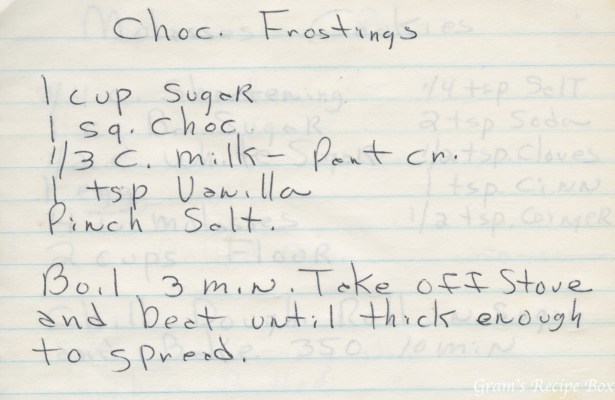 Choc. Frostings
1 cup Sugar
1 sq. Choc
1/3 C. milk – Pont cr.
1 tsp Vanilla
Pinch Salt.
Boil 3 min. Take off Stove
and beat until thick enough
to spread.
Gram's Recipe Box